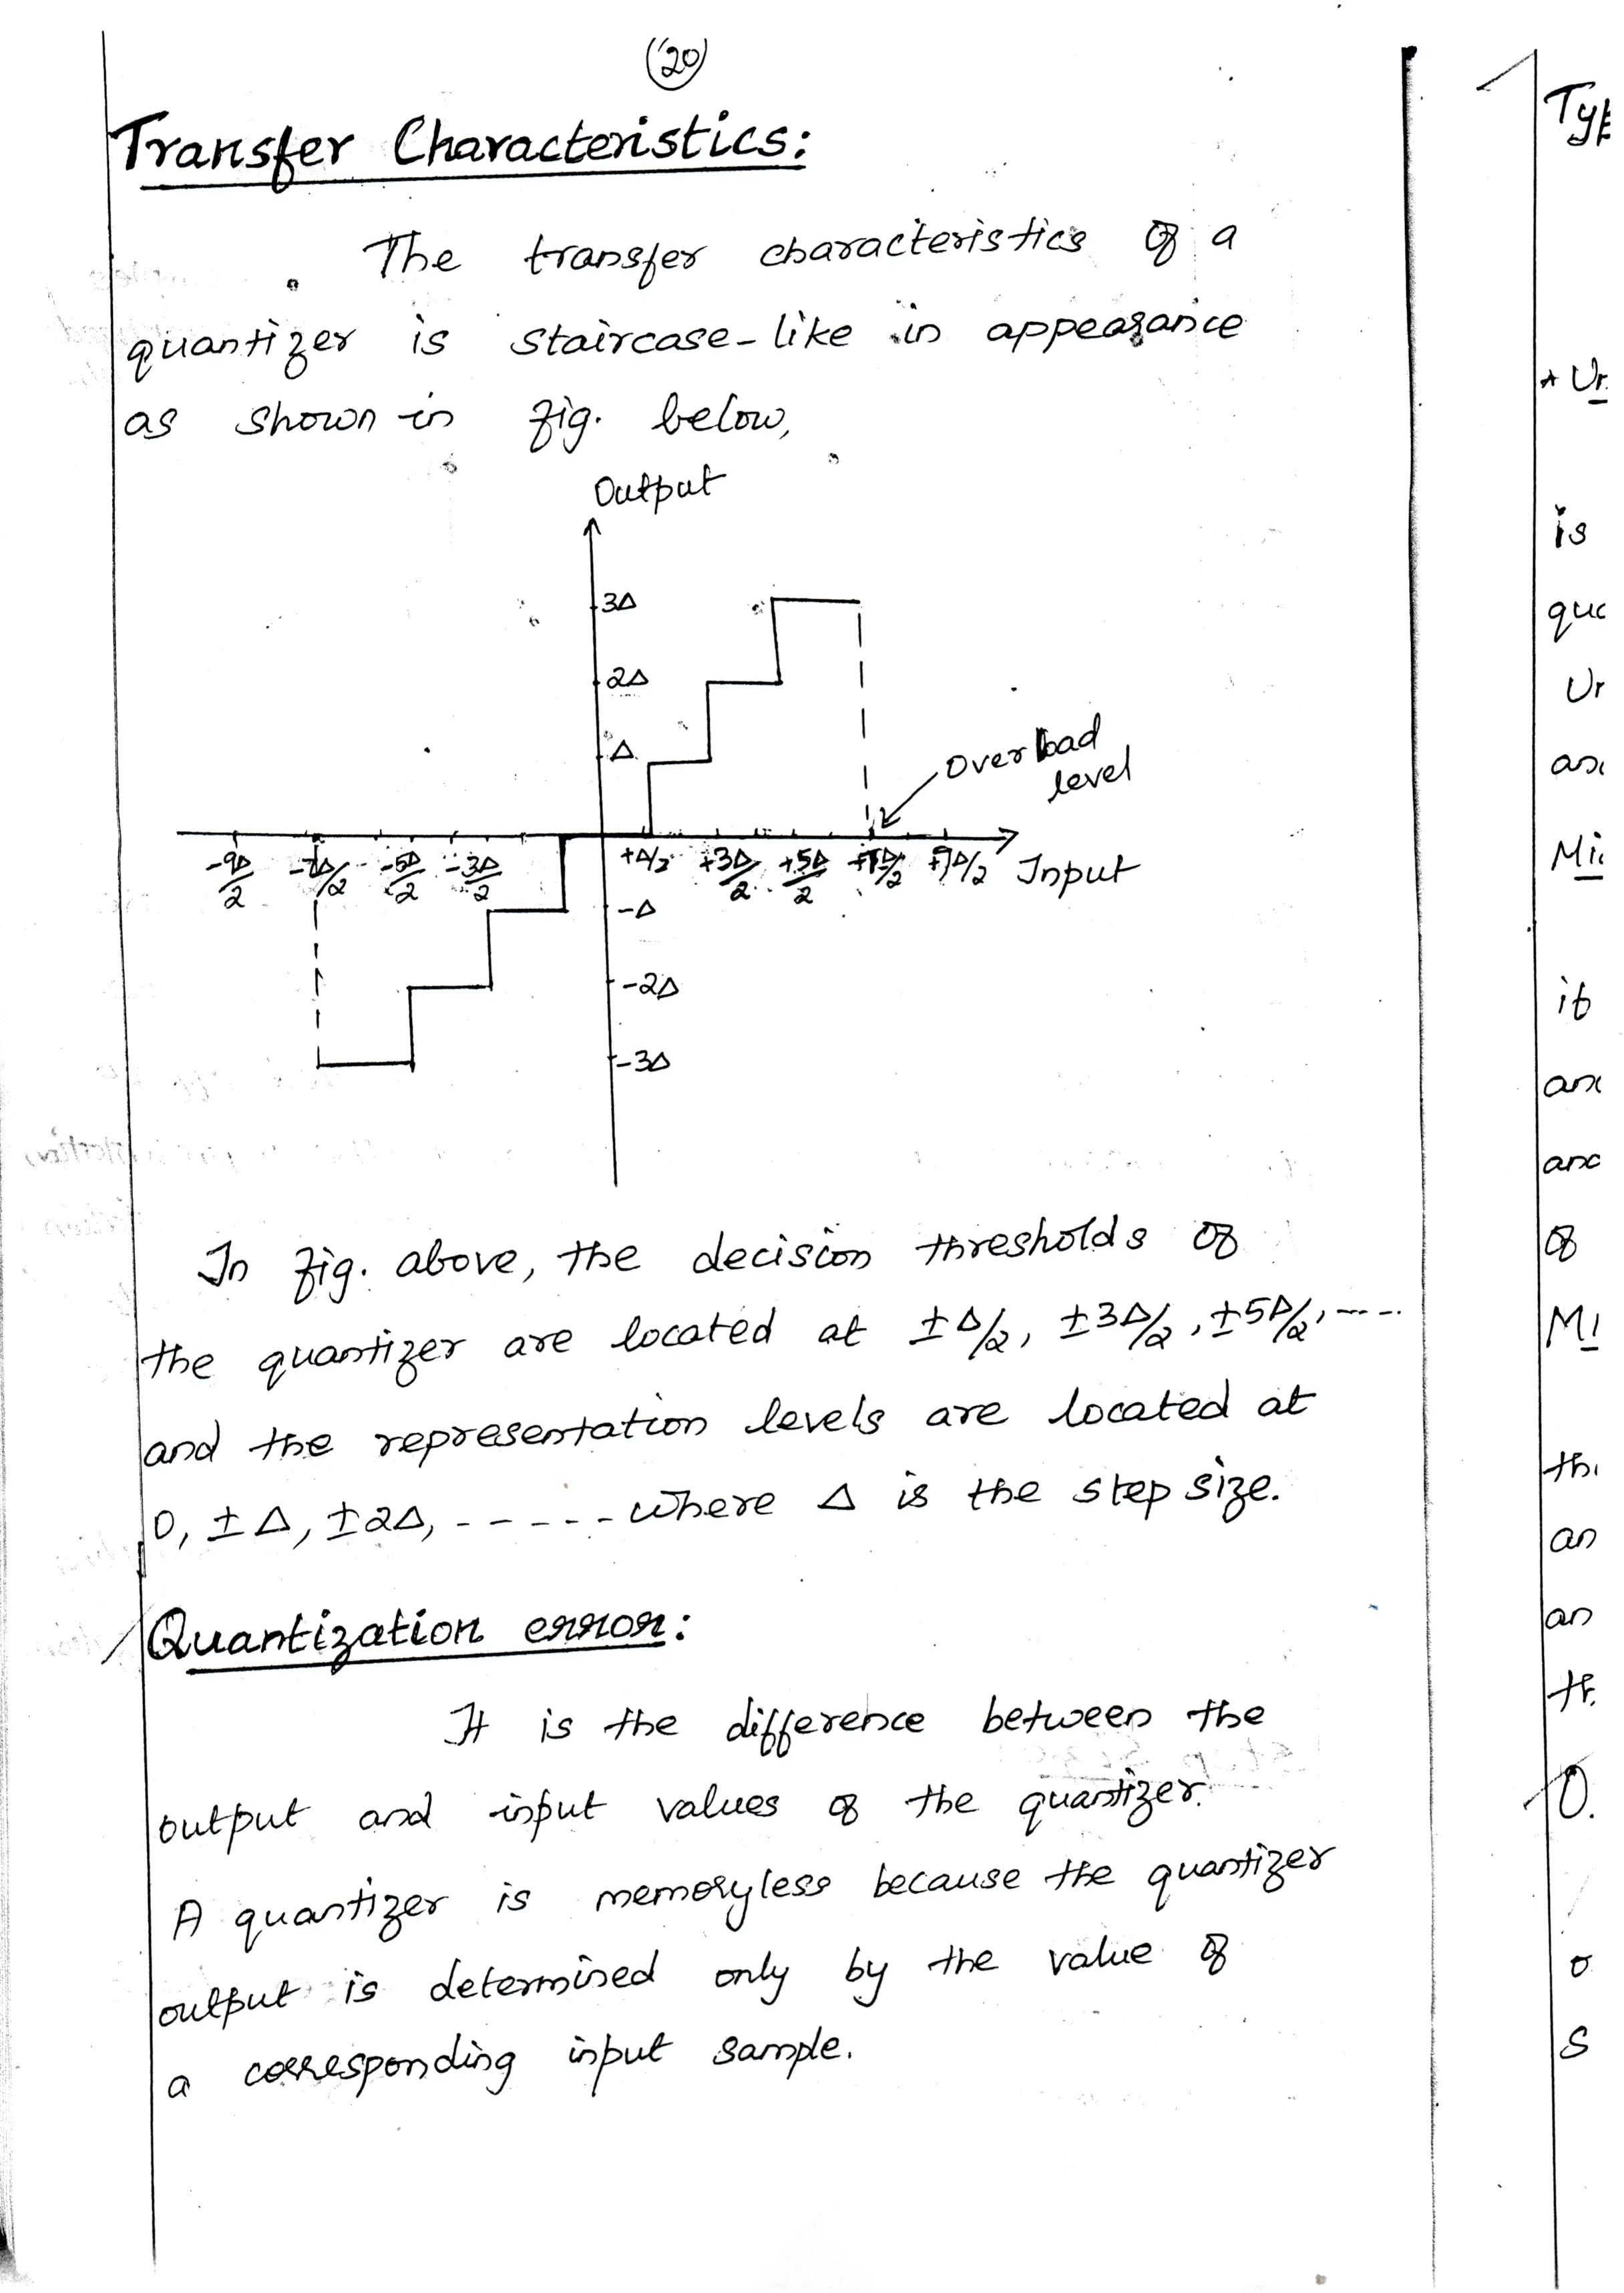 (20)
Transfer Characteristics:
The transfer characteristics of a
quantizer is staircase-like in appearance
as shown in fig. below,
Output
3Δ
2Δ
Δ
Overload
level
-9Δ/2 -7Δ/2 -5Δ/2 -3Δ/2 +Δ/2 +3Δ/2 +5Δ/2 +7Δ/2 +9Δ/2 Input
-Δ
-2Δ
-3Δ
In fig. above, the decision thresholds of
the quantizer are located at ±Δ/2, ±3Δ/2, ±5Δ/2, ----
and the representation levels are located at
0, ±Δ, ±2Δ, ----- where Δ is the step size.
Quantization error:
It is the difference between the
output and input values of the quantizer.
A quantizer is memoryless because the quantizer
output is determined only by the value of
a corresponding input sample.
is
as
Mi
it
of
M
an
an